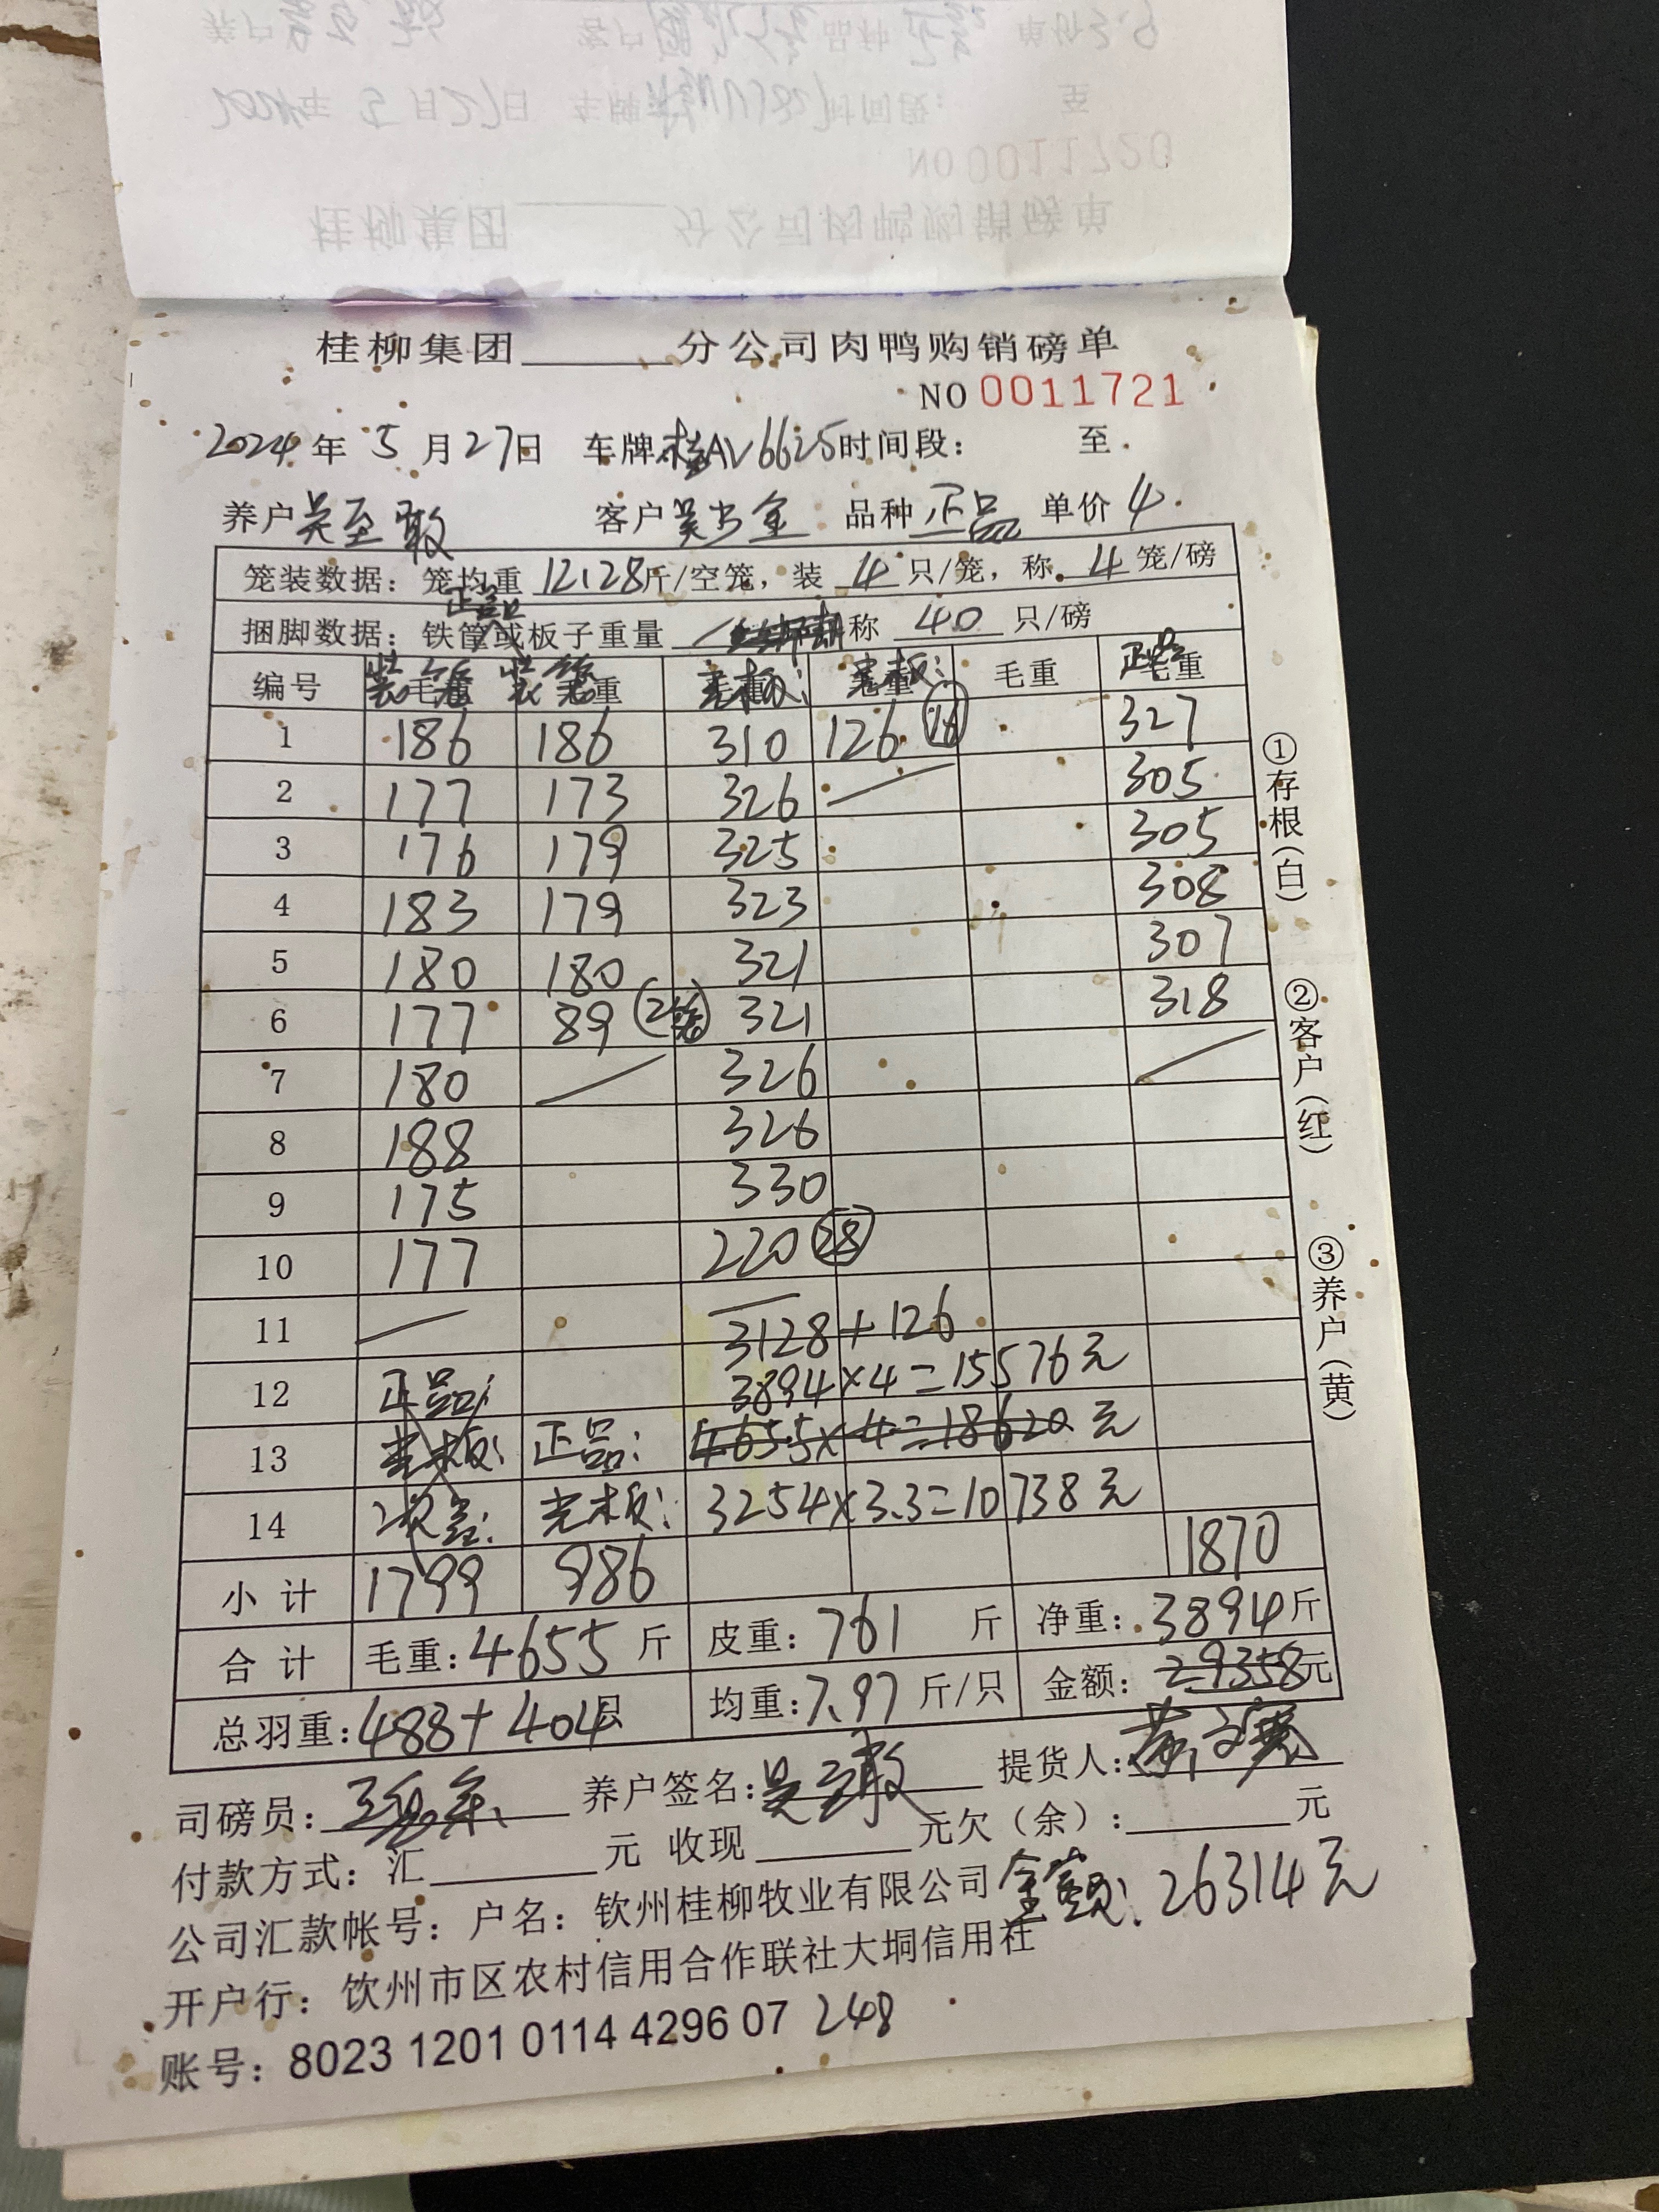 桂柳集团______分公司肉鸭购销磅单
NO 0011721
2024年 5月27日 车牌桂AV6625时间段: 至
养户吴至敢 客户吴少金 品种正品 单价4
笼装数据:笼均重 12.28斤/空笼,装 4 只/笼,称 4 笼/磅
正品
捆脚数据:铁筐或板子重量 称 40 只/磅
编号 装笼毛重 装笼毛重 光板:毛重 光板:毛重 毛重 正品毛重
1 186 186 310 126 (16) 327
2 177 173 326 305
3 176 179 325 305
4 183 179 323 308
5 180 180 321 307
6 177 89 (2笼) 321 318
7 180 326
8 188 326
9 175 330
10 177 220 (28)
11 3128+126
12 正品: 3894×4=15576元
13 光板: 正品: 4655×4=18620元
14 次品: 光板: 3254×3.3=10738元
小计 1799 986 1870
合计 毛重:4655斤 皮重:761 斤 净重:3894斤
总羽重:488+404只 均重:7.97 斤/只 金额:29358元
司磅员: 养户签名:吴至敢 提货人:
付款方式:汇______元 收现______元欠(余):______元
公司汇款帐号:户名:钦州桂柳牧业有限公司 金额:26314元
开户行:钦州市区农村信用合作联社大垌信用社
账号:8023 1201 0114 4296 07 248
①存根(白)
②客户(红)
③养户(黄)